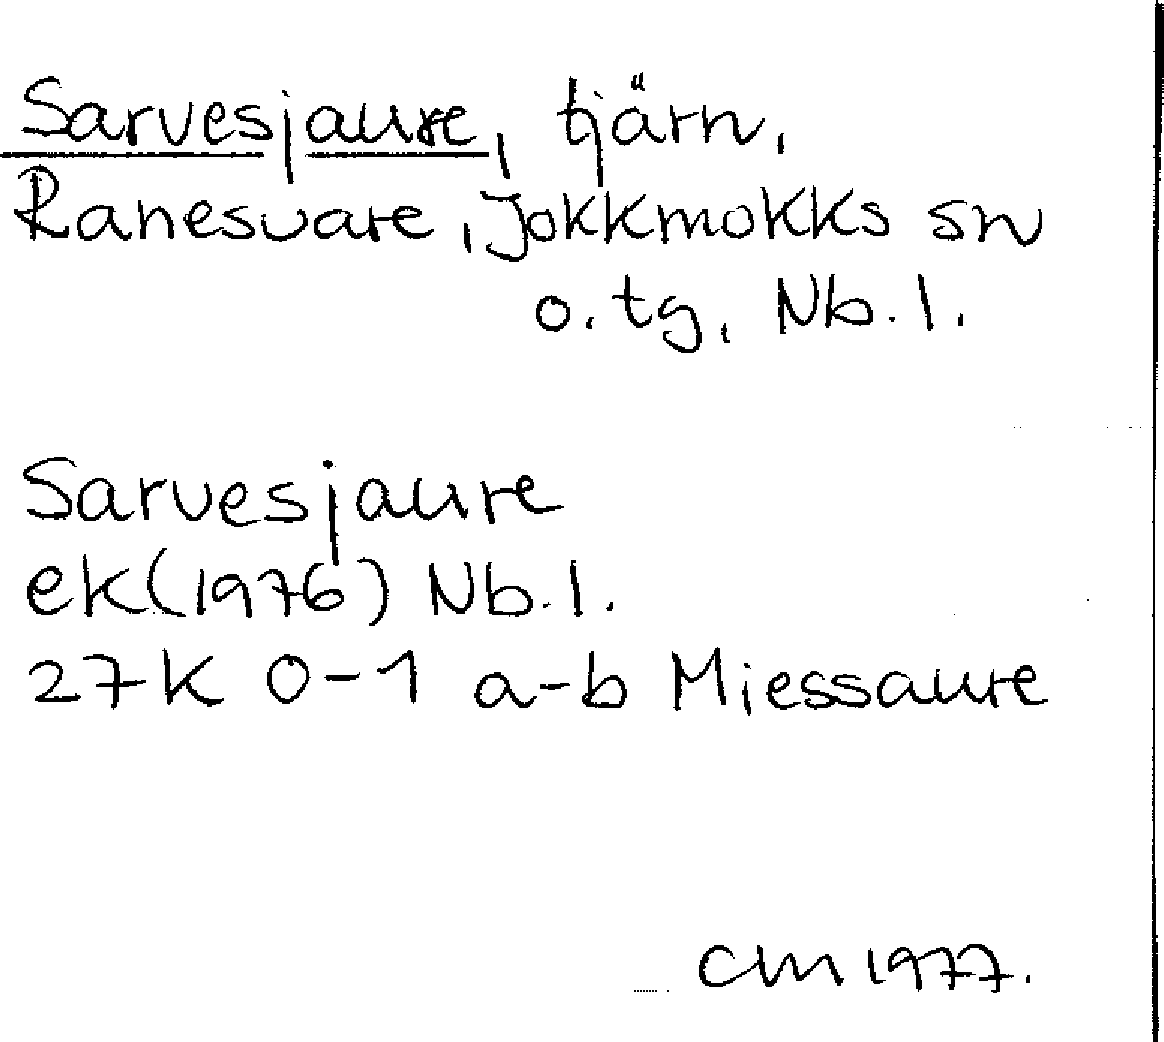 Sarvesjaure, tjärn,
Ranesvare, Jokkmokks sn
o. tg, Nb. l.
Sarvesjaure
ek (1976) Nb. l.
27K 0-1 a-b Miessaure
CM 1977.